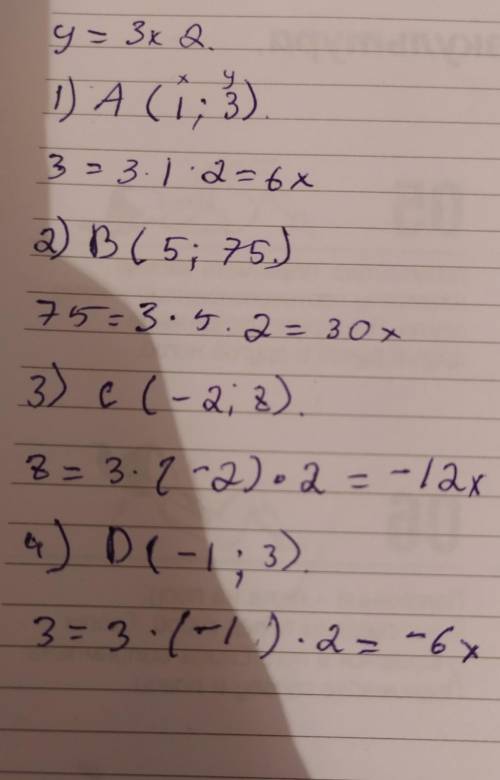 y = 3x2.
x y
1) A (1; 3).
3 = 3·1·2 = 6x
2) B (5; 75.)
75 = 3·5·2 = 30x
3) C (-2; 8).
8 = 3·(-2)·2 = -12x
4) D (-1; 3).
3 = 3·(-1)·2 = -6x